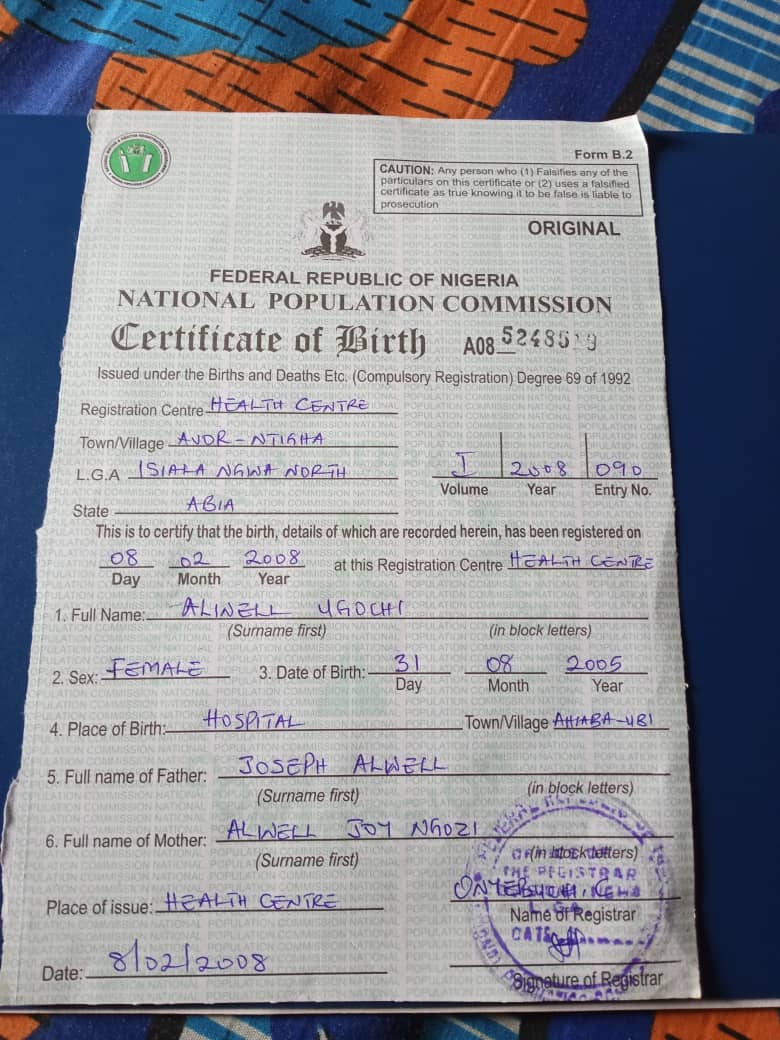 Form B.2
CAUTION: Any person who (1) Falsifies any of the
particulars on this certificate or (2) uses a falsified
certificate as true knowing it to be false is liable to
prosecution
ORIGINAL
FEDERAL REPUBLIC OF NIGERIA
NATIONAL POPULATION COMMISSION
Certificate of Birth A08
Issued under the Births and Deaths Etc. (Compulsory Registration) Degree 69 of 1992
Registration Centre HEALTH CENTRE
Town/Village AVOR-NTIGHA
L.G.A ISIALA NGWA NORTH
I 2008 090
Volume Year Entry No.
State ABIA
This is to certify that the birth, details of which are recorded herein, has been registered on
08 02 2008 at this Registration Centre HEALTH CENTRE
Day Month Year
1. Full Name: ALINELL UGOCHI
(Surname first) (in block letters)
2. Sex: FEMALE 3. Date of Birth: 31 08 2005
Day Month Year
4. Place of Birth: HOSPITAL Town/Village AHIABA-UBI
5. Full name of Father: JOSEPH ALWELL
(Surname first) (in block letters)
6. Full name of Mother: ALWELL JOY NGOZI
(Surname first) (in block letters)
THE REGISTRAR
Place of issue: HEALTH CENTRE
Name of Registrar
DATE
Date: 8/02/2008
Signature of Registrar